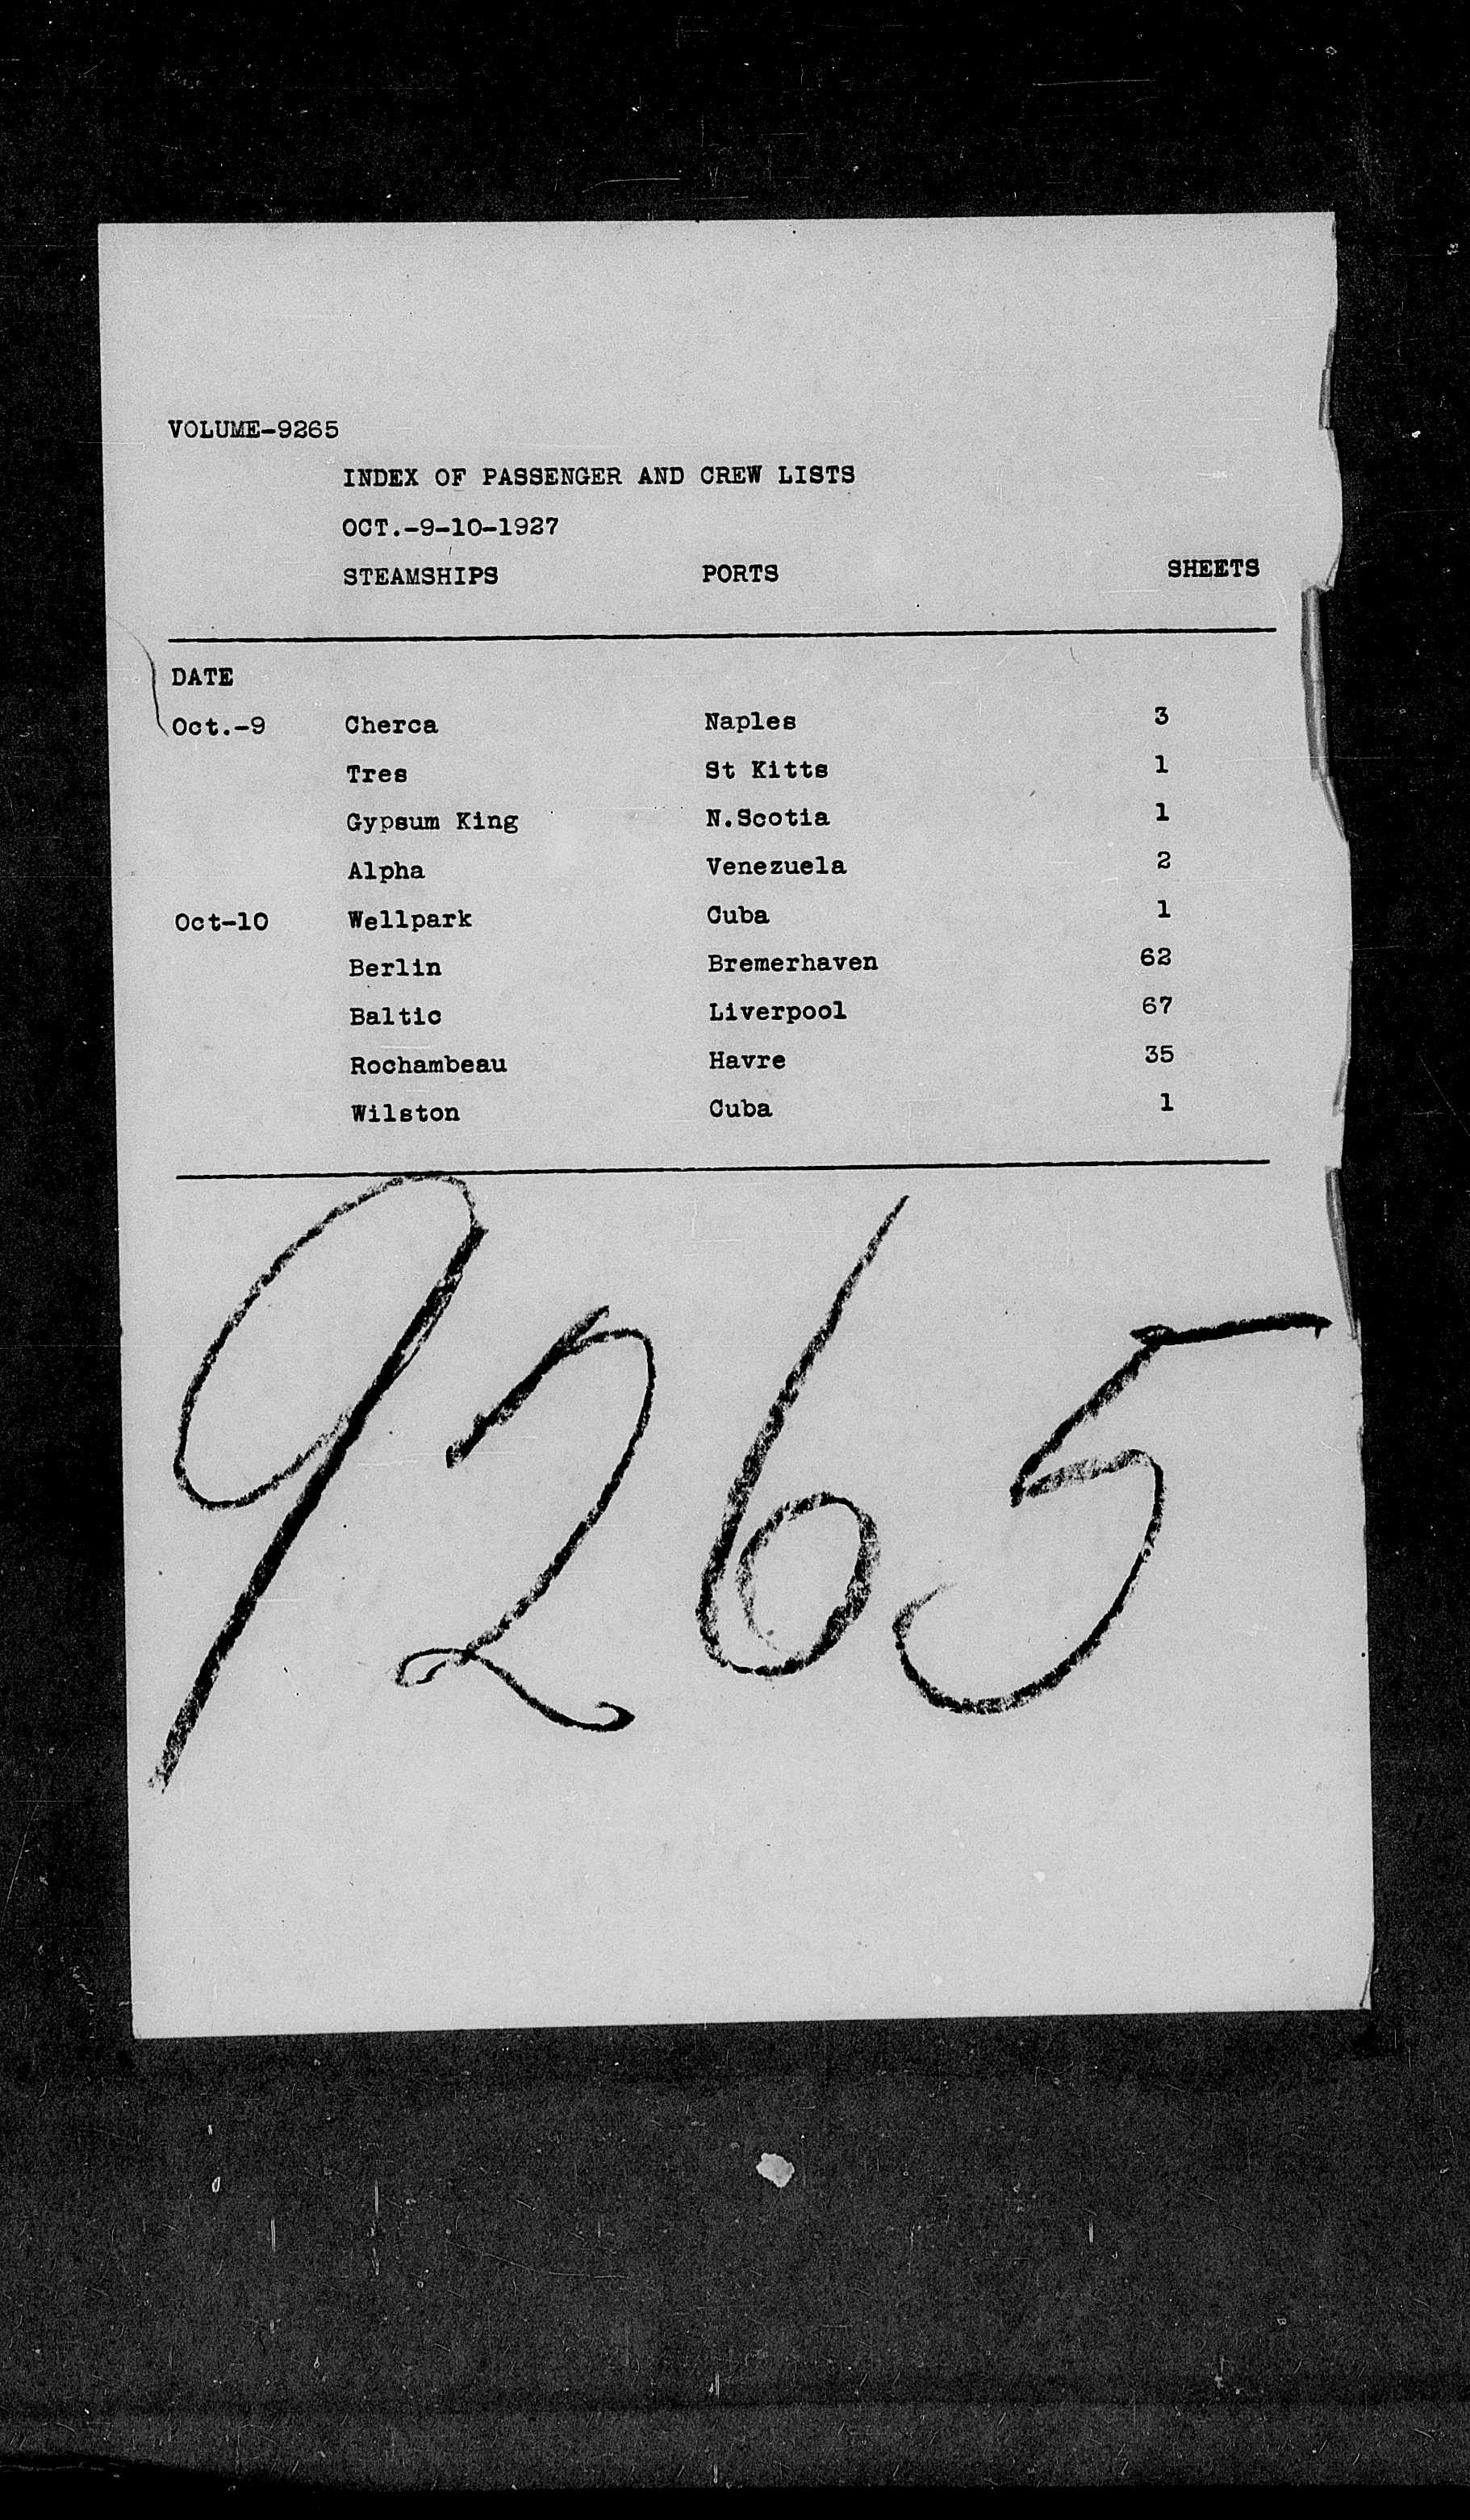 VOLUME-9265
INDEX OF PASSENGER AND CREW LISTS
OCT.-9-10-1927
STEAMSHIPS PORTS SHEETS
DATE
Oct.-9 Cherca Naples 3
Tres St Kitts 1
Gypsum King N.Scotia 1
Alpha Venezuela 2
Oct-10 Wellpark Cuba 1
Berlin Bremerhaven 62
Baltic Liverpool 67
Rochambeau Havre 35
Wilston Cuba 1
9265